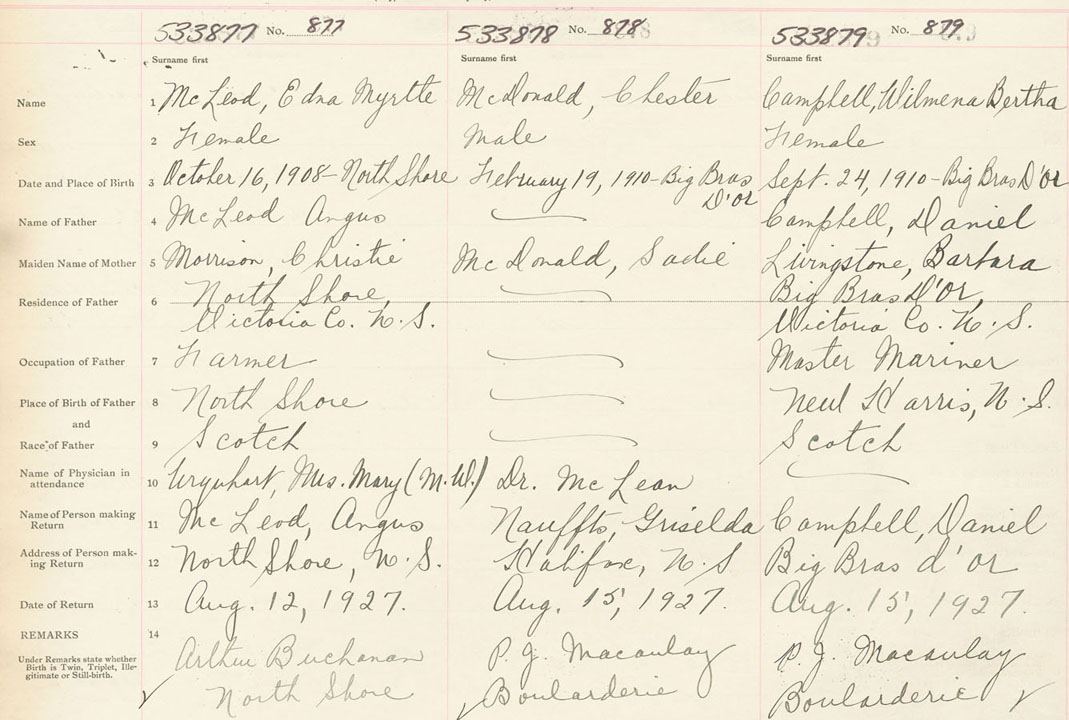 533877 No. 877 533878 No. 878 533879 No. 879
Surname first Surname first Surname first
Name 1 McLeod, Edna Myrtle McDonald, Chester Campbell, Wilmena Bertha
Sex 2 Female Male Female
Date and Place of Birth 3 October 16, 1908 - North Shore February 19, 1910 - Big Bras D'or Sept. 24, 1910 - Big Bras D'or
Name of Father 4 McLeod Angus Campbell, Daniel
Maiden Name of Mother 5 Morrison, Christie McDonald, Sadie Livingstone, Barbara
Residence of Father 6 North Shore, Big Bras D'Or,
Victoria Co. N.S. Victoria Co. N.S.
Occupation of Father 7 Farmer Master Mariner
Place of Birth of Father 8 North Shore New Harris, N.S.
and
Race of Father 9 Scotch Scotch
Name of Physician in
attendance 10 Urquhart, Mrs. Mary (M.W.) Dr. McLean
Name of Person making
Return 11 McLeod, Angus Nauffts, Griselda Campbell, Daniel
Address of Person mak-
ing Return 12 North Shore, N.S. Halifax, N.S Big Bras d'or
Date of Return 13 Aug. 12, 1927. Aug. 15, 1927. Aug. 15, 1927.
REMARKS 14
Under Remarks state whether
Birth is Twin, Triplet, Ille-
gitimate or Still-birth.
Arthur Buchanan P. J. Macaulay P. J. Macaulay
North Shore Boularderie Boularderie